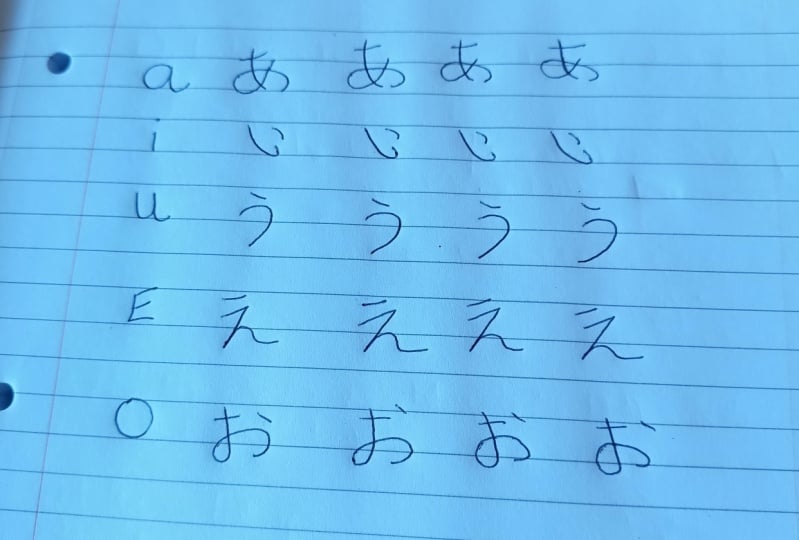 a あ あ あ あ
i い い い い
u う う う う
E え え え え
O お お お お